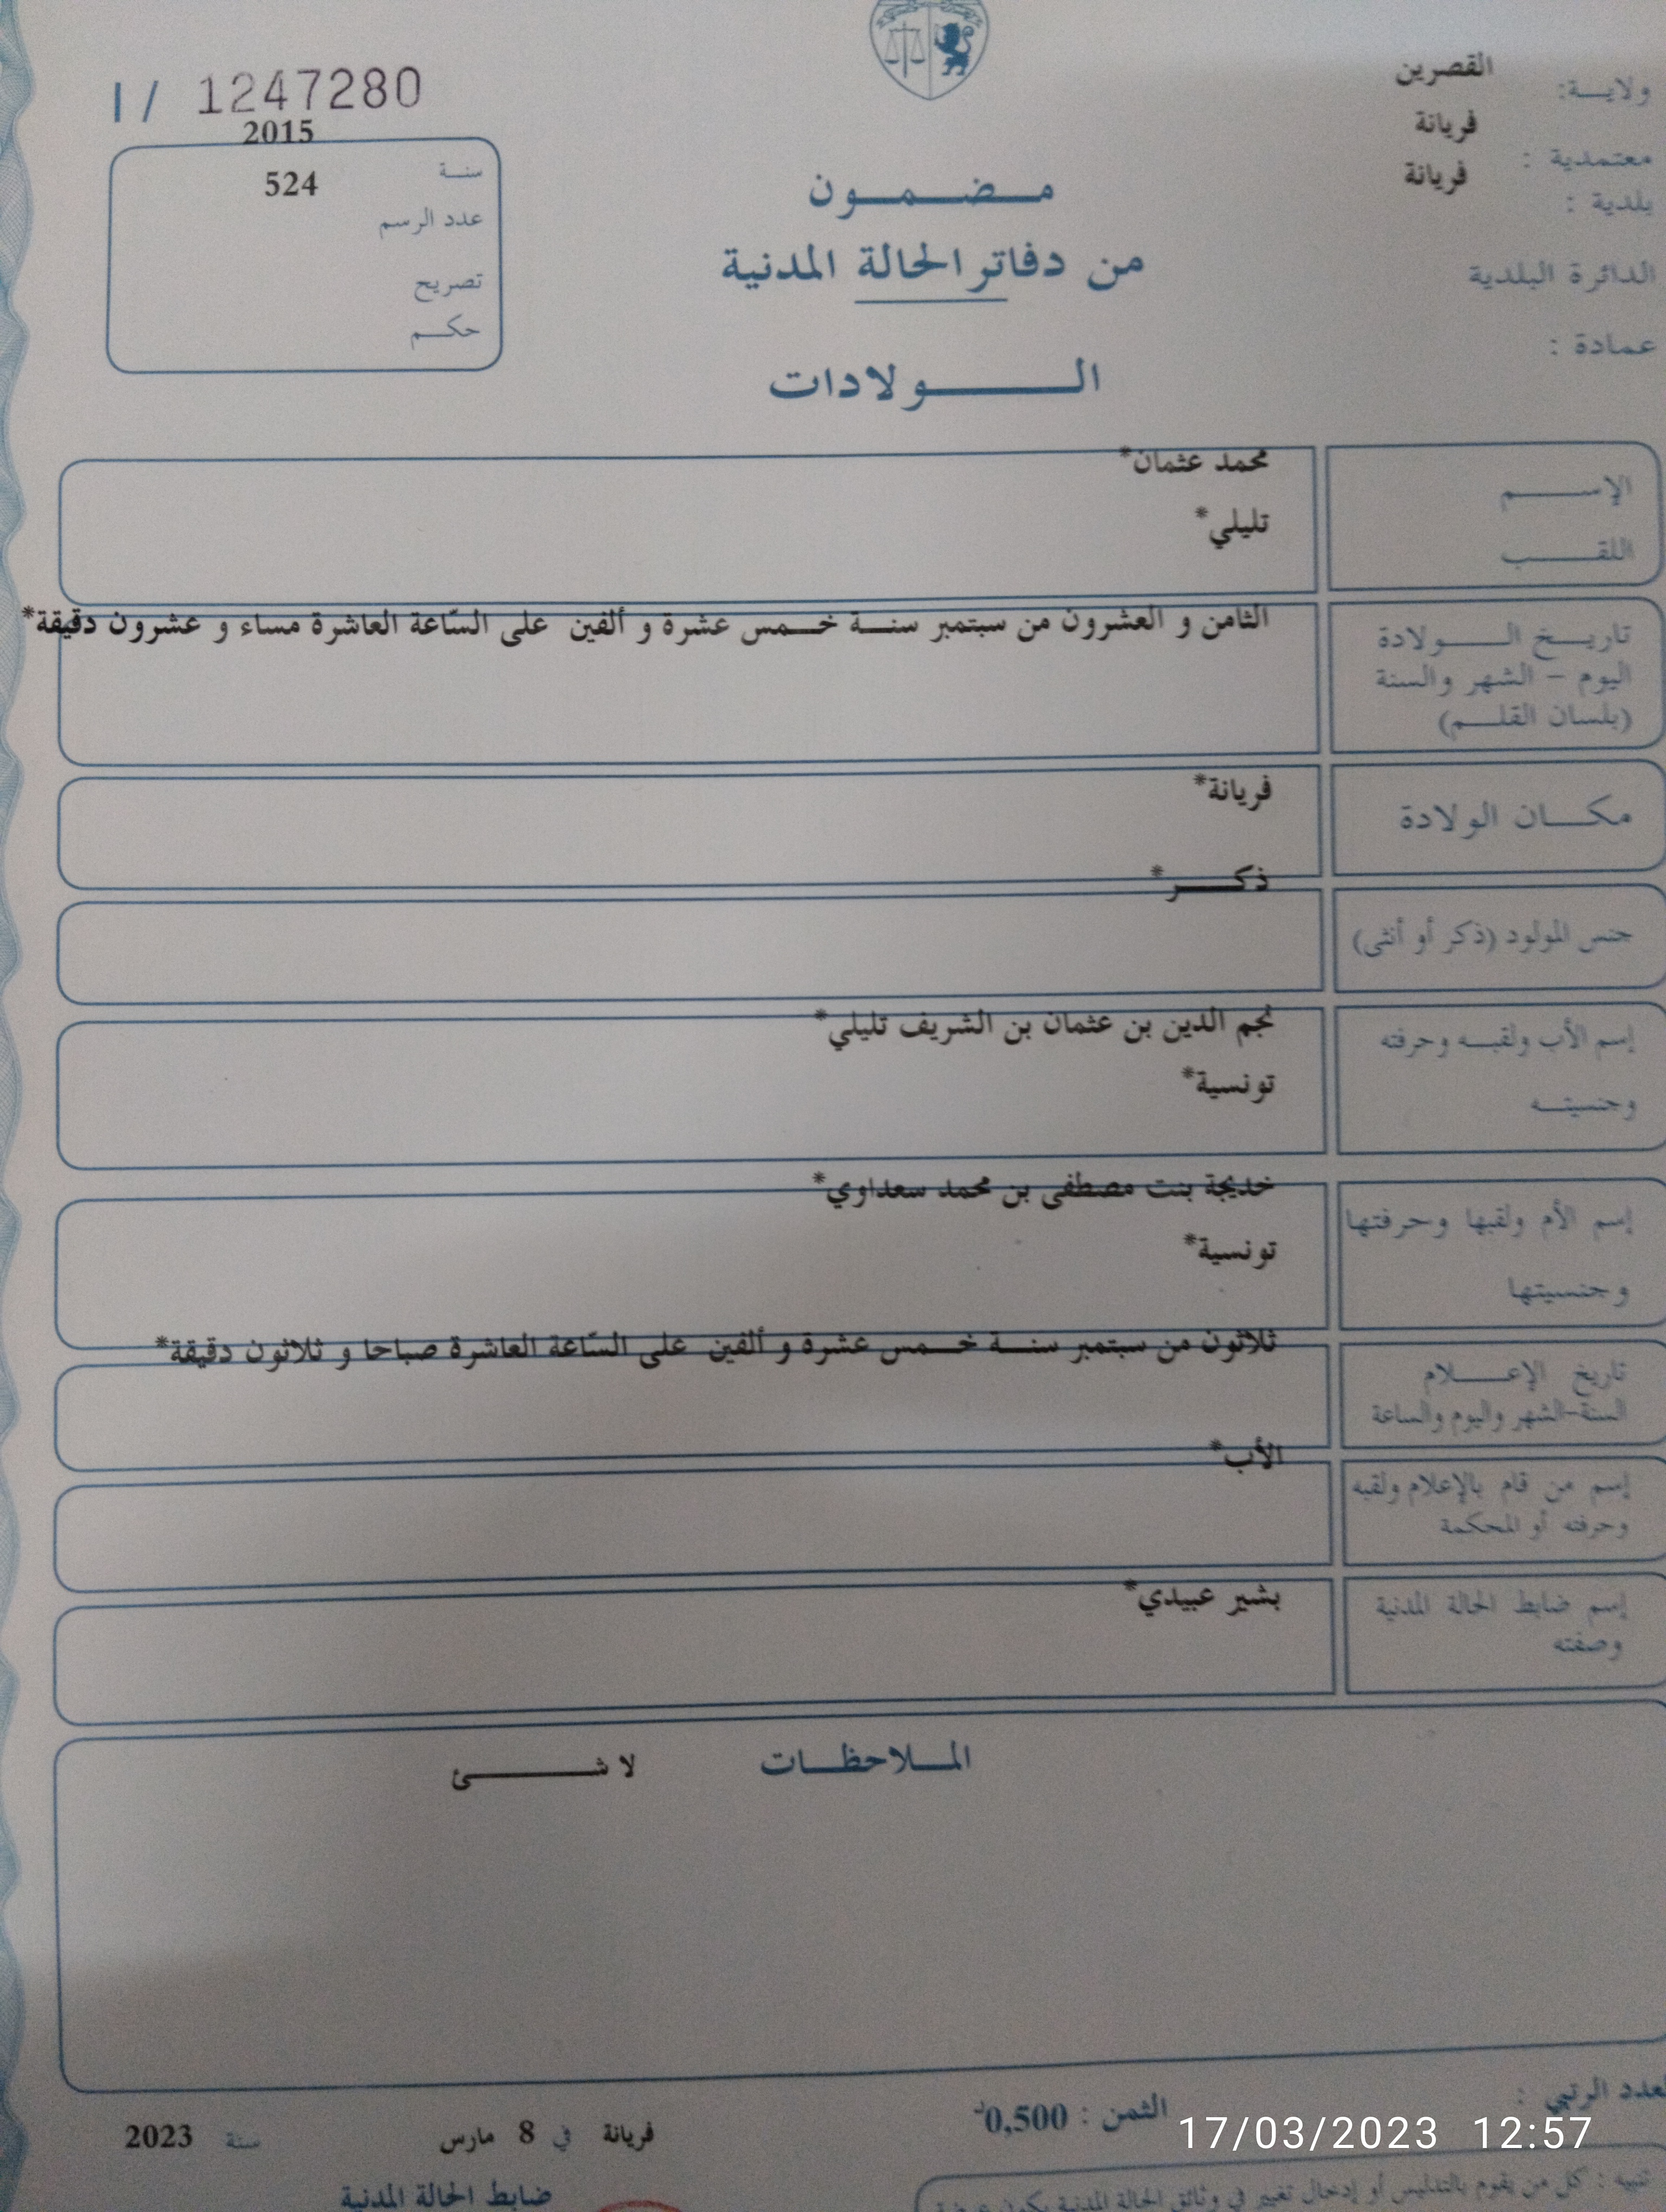 ولايــة: القصرين
معتمدية : فريانة
بلدية : فريانة
الدائرة البلدية
عمادة :
I / 1247280
2015
سنــة
524
عدد الرسم
تصريح
حكــم
مــضــمــون
من دفاتر الحالة المدنية
الــولادات
الإســـم
محمد عثمان*
اللقــب
تليلي*
تاريــخ الــولادة
اليوم - الشهر والسنة
(بلسان القلــم)
الثامن و العشرون من سبتمبر سنــة خــمس عشرة و ألفين على السّاعة العاشرة مساء و عشرون دقيقة*
مكــان الولادة
فريانة*
جنس المولود (ذكر أو أنثى)
ذكــر*
إسم الأب ولقبــه وحرفته
وجنسيتــه
نجم الدين بن عثمان بن الشريف تليلي*
تونسية*
إسم الأم ولقبها وحرفتها
وجنسيتها
خديجة بنت مصطفى بن محمد سعداوي*
تونسية*
تاريخ الإعــلام
السنة-الشهر واليوم والساعة
ثلاثون من سبتمبر سنــة خــمس عشرة و ألفين على السّاعة العاشرة صباحا و ثلاثون دقيقة*
إسم من قام بالإعلام ولقبه
وحرفته أو المحكمة
الأب*
إسم ضابط الحالة المدنية
وصفته
بشير عبيدي*
المــلاحظــات لا شــئ
العدد الرتبي :
الثمن : 0,500د
فريانة في 8 مارس سنة 2023
ضابط الحالة المدنية
تنبيه : كل من يقوم بالتدليس أو إدخال تغيير في وثائق الحالة المدنية يكون عرضة
17/03/2023 12:57